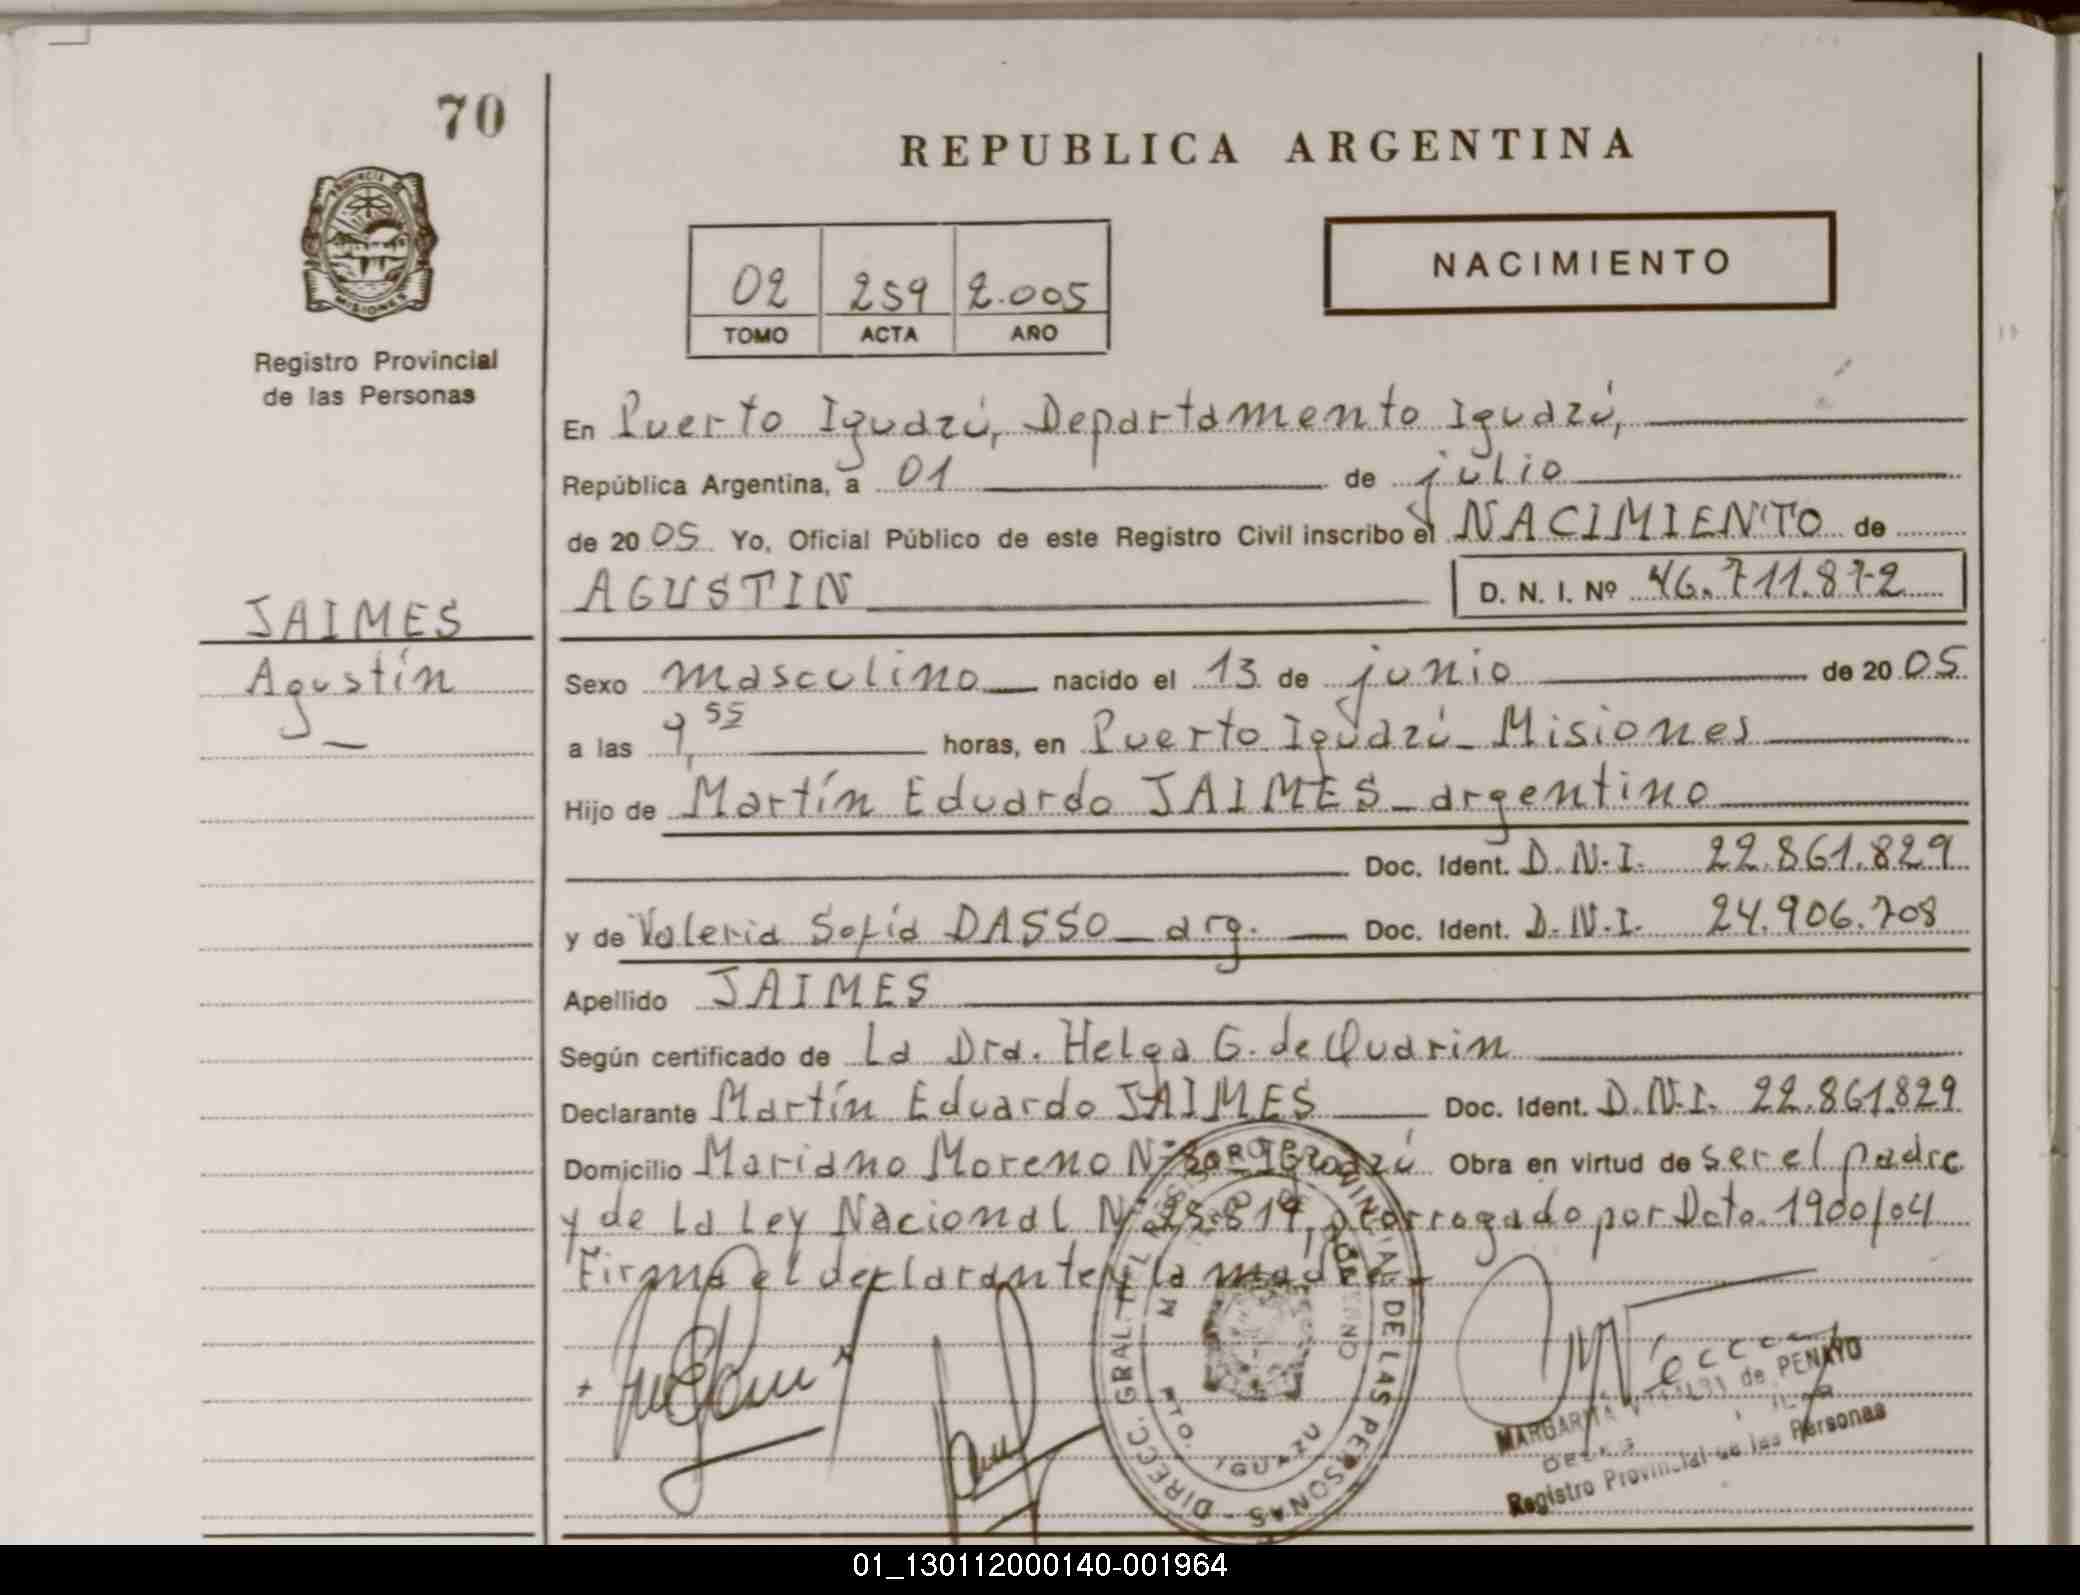 70
REPUBLICA ARGENTINA
PROVINCIA DE
MISIONES
Registro Provincial
de las Personas
02 259 2.005
TOMO ACTA AÑO
NACIMIENTO
En Puerto Iguazú, Departamento Iguazú,
República Argentina, a 01 de julio
de 2005 Yo, Oficial Público de este Registro Civil inscribo el NACIMIENTO de
AGUSTIN D. N. I. Nº 46.711.872
JAIMES
Agustín
Sexo masculino nacido el 13 de junio de 2005
a las 9,55 horas, en Puerto Iguazú - Misiones
Hijo de Martín Eduardo JAIMES - argentino
Doc. Ident. D.N.I. 22.861.829
y de Valeria Sofía DASSO - arg. Doc. Ident. D.N.I. 24.906.708
Apellido JAIMES
Según certificado de La Dra. Helga G. de Quarin
Declarante Martín Eduardo JAIMES Doc. Ident. D.N.I. 22.861.829
Domicilio Mariano Moreno Obra en virtud de ser el padre
y de La Ley Nacional Nº 25.819, prorrogado por Dcto. 1900/04
Firma el declarante y la madre
DIRECC. GRAL. DEL REGISTRO PROVINCIAL DE LAS PERSONAS
DTO. IGUAZU
MARGARITA de PENAYO
Registro Provincial de las Personas
01_130112000140-001964